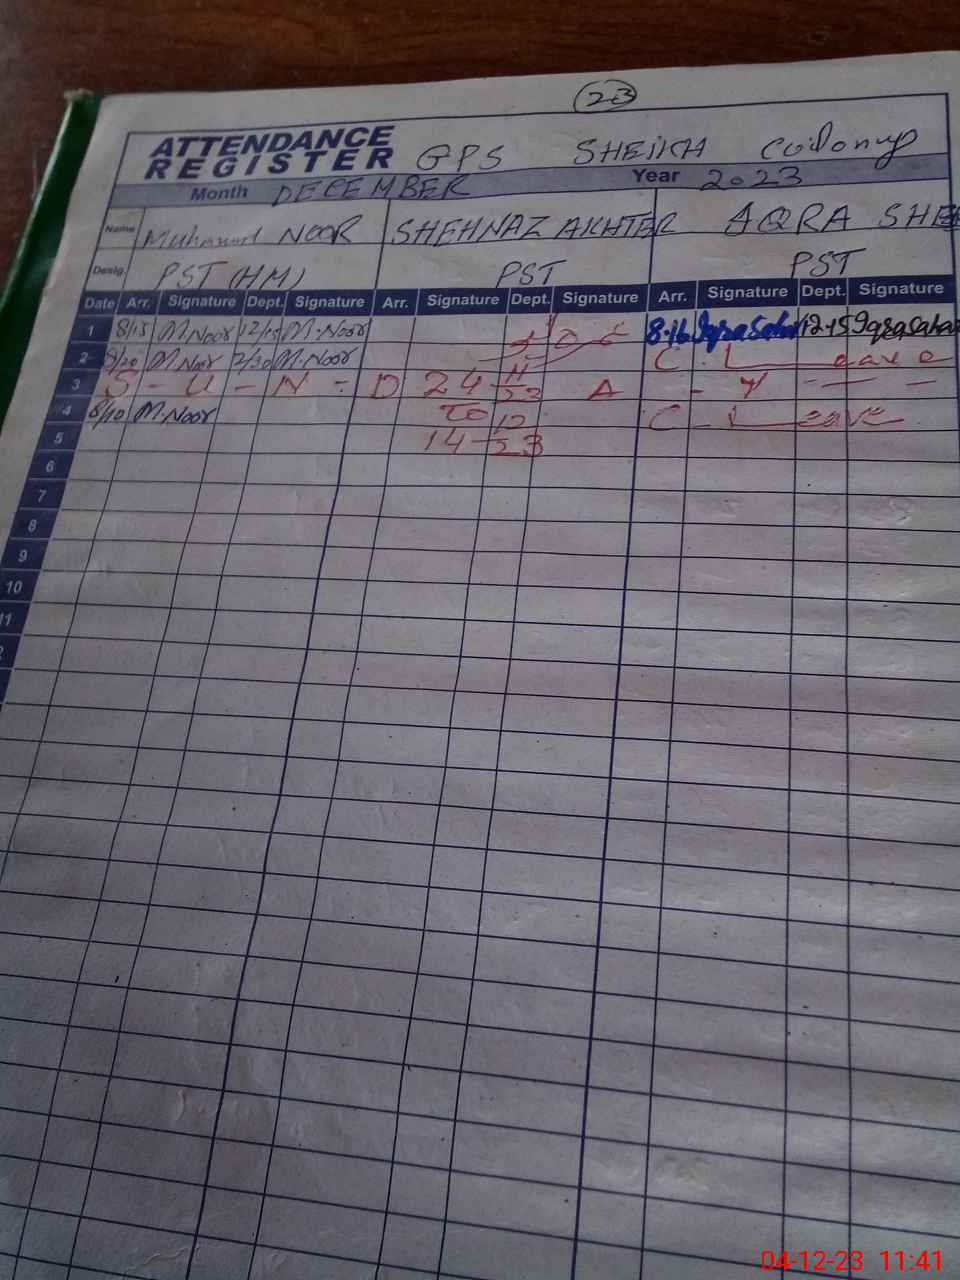 23
ATTENDANCE REGISTER GPS SHEIKH Coilony
Month DECEMBER Year 2023
Name Muhammad NOOR SHEHNAZ AKHTER IQRA SHE
Desig. PST (HM) PST PST
Date Arr. Signature Dept. Signature Arr. Signature Dept. Signature Arr. Signature Dept. Signature
1 8/15 M.Noor 12/15 M.Noor 8.16 IqraSahar 12.15 IqraSahar
2 8/20 M.Noor 12/30 M.Noor C. Leave
3 S - U - N - D 24 11/23 A - Y - -
4 8/10 M.Noor To C - Leave
5 14 12/23
6
7
8
9
10
11
04-12-23 11:41